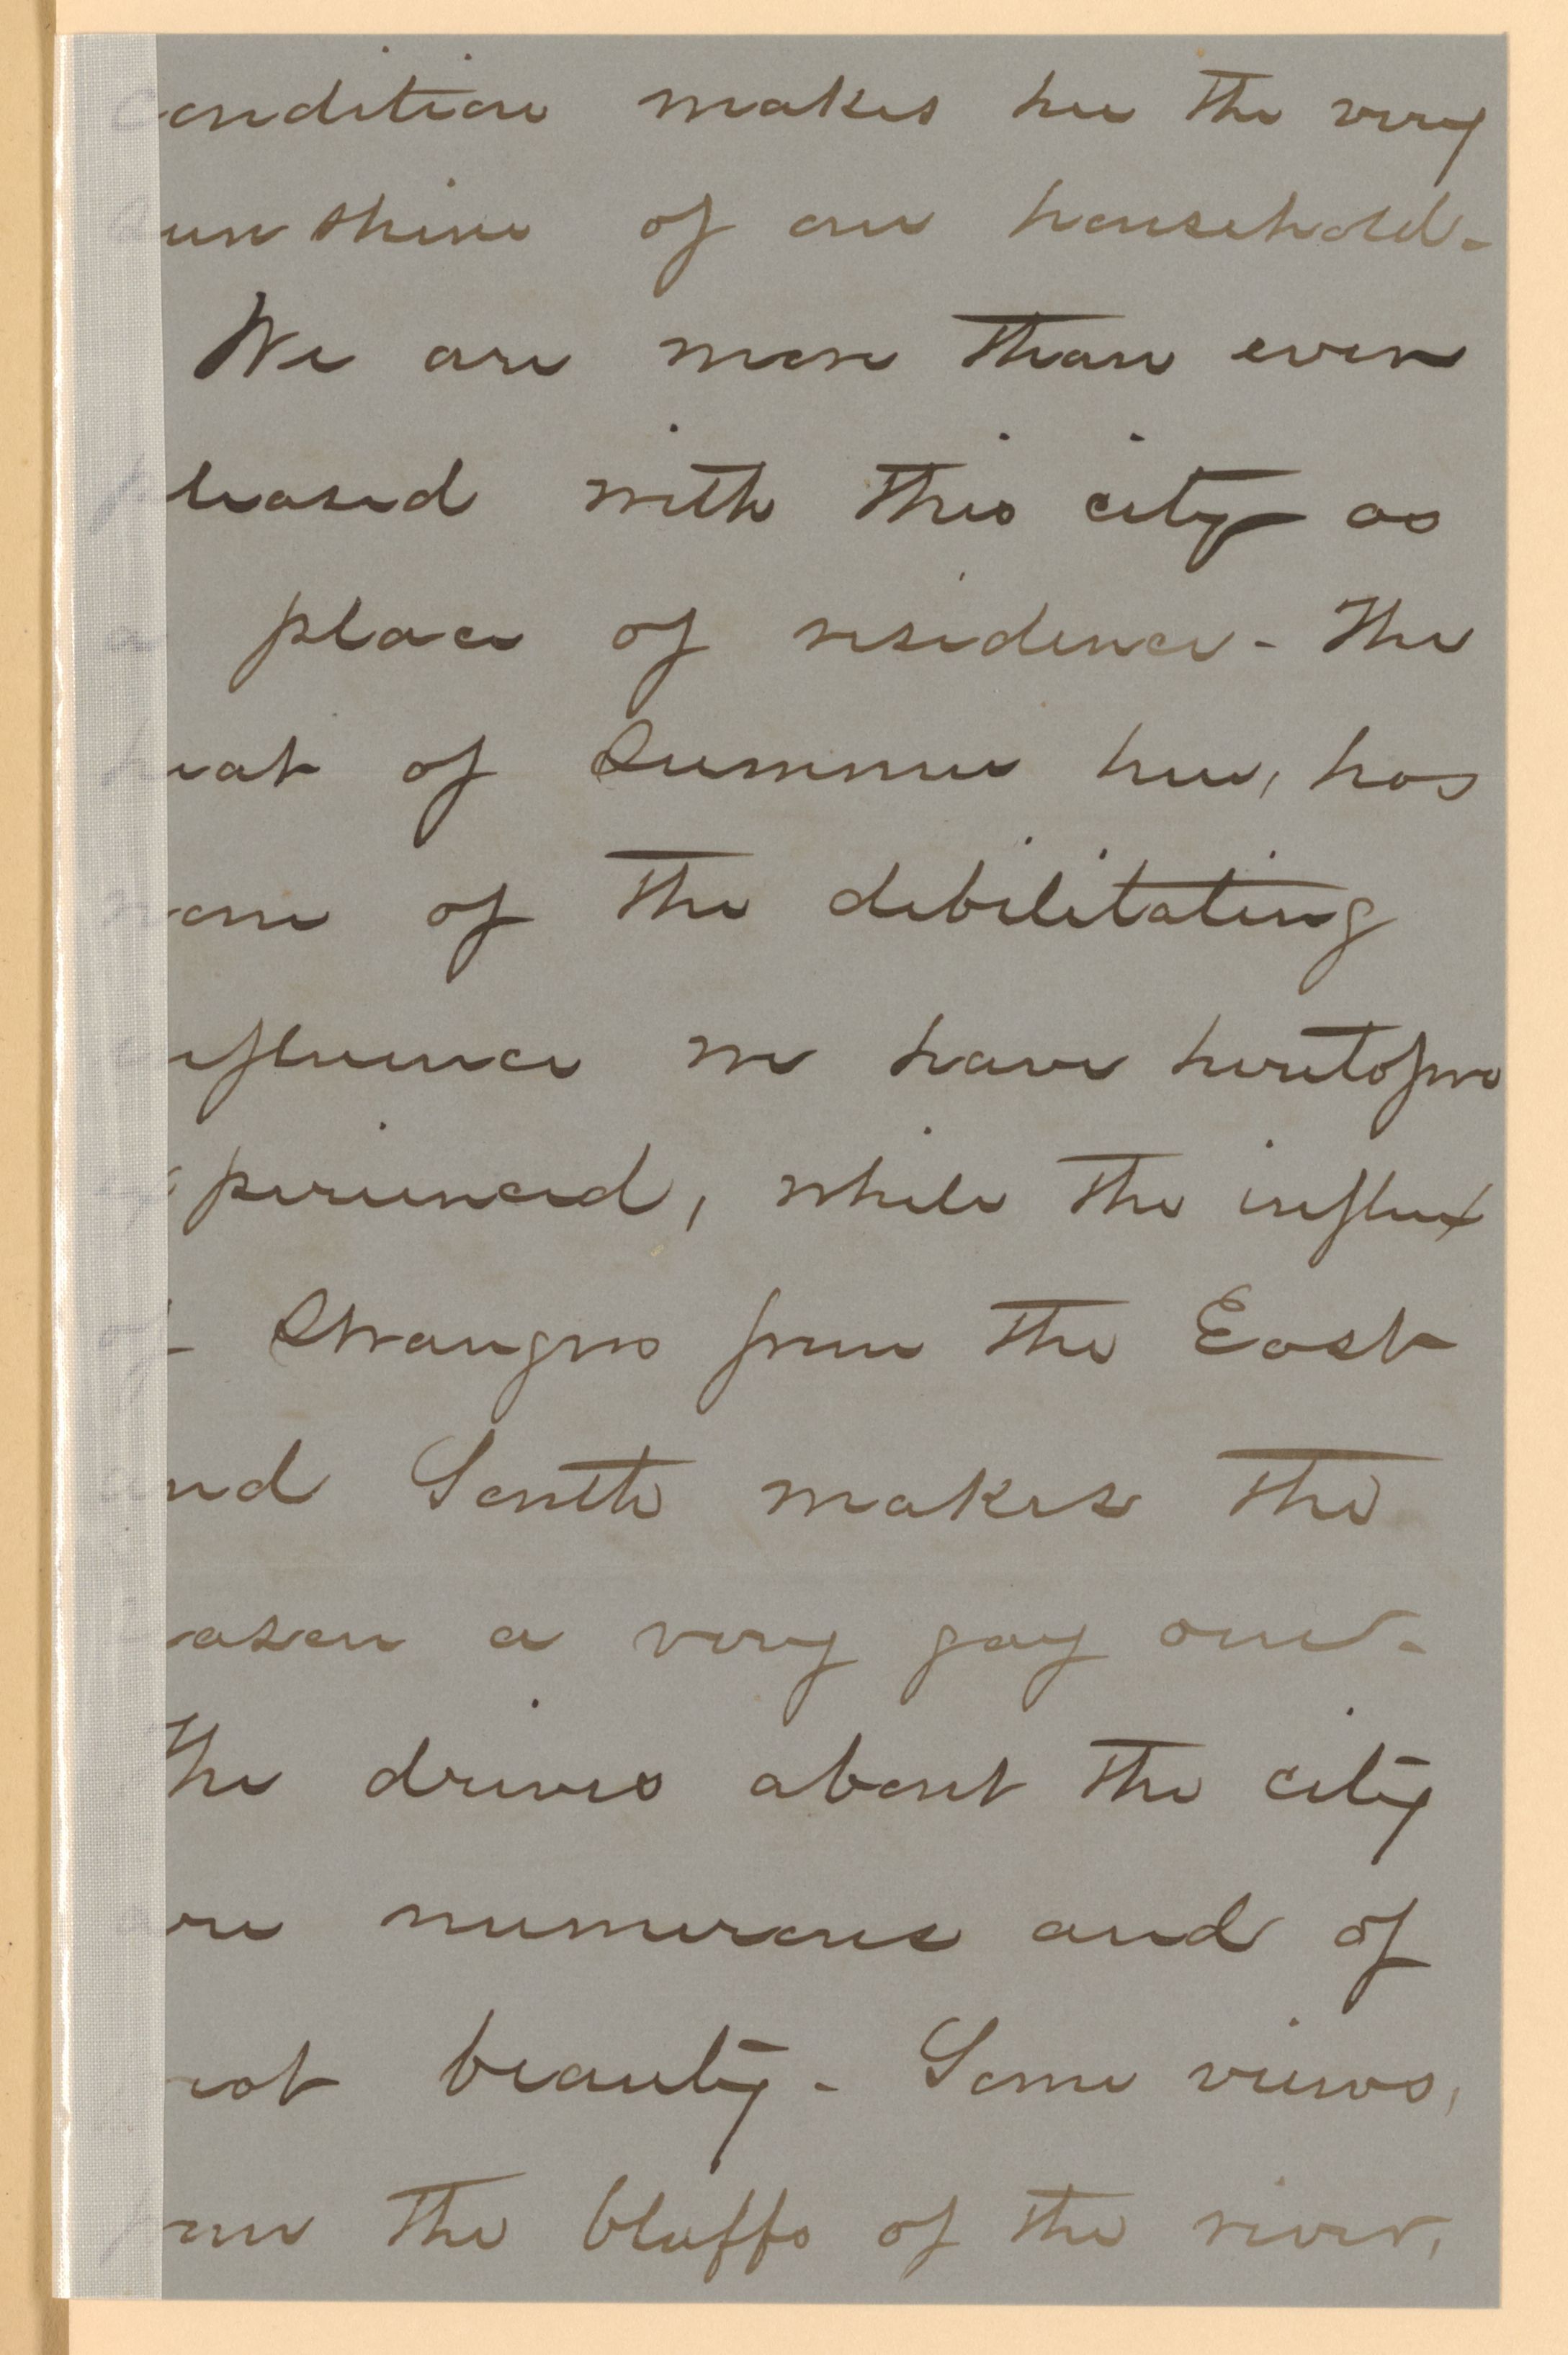 condition makes her the very
sunshine of our household-
We are more than ever
pleased with this city as
a place of residence - The
heat of Summer here, has
none of the debilitating
influence we have heretofore
experienced, while the influx
of Strangers from the East
and South makes the
season a very gay one-
The drives about the city
are numerous and of
great beauty - Some views,
from the bluffs of the river,